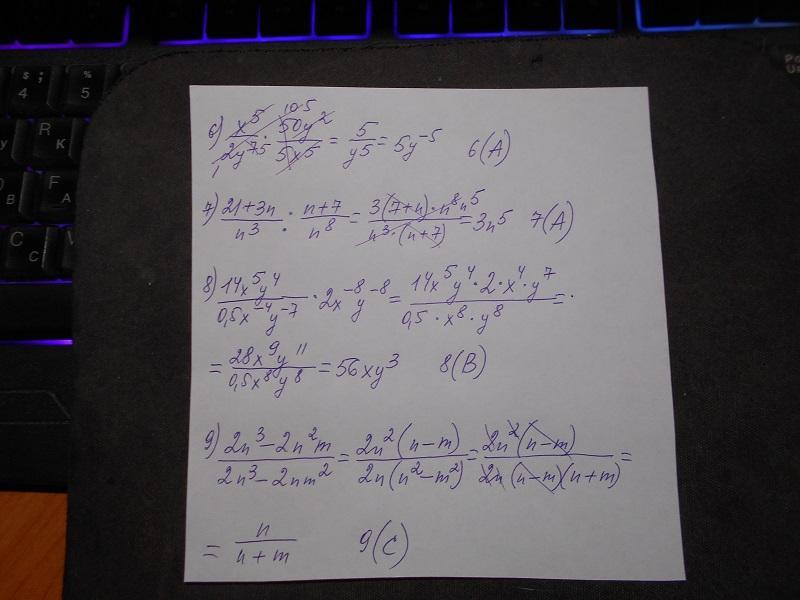 6) x^5/2y^7 · 50y^2/5x^5 = 5/y^5 = 5y^-5 6(A)
7) 21+3n/n^3 : n+7/n^8 = 3(7+n)·n^8 n^5/n^3·(n+7) = 3n^5 7(A)
8) 14x^5y^4/0,5x^-4y^-7 · 2x^-8y^-8 = 14x^5y^4·2·x^4·y^7/0,5·x^8·y^8 =
= 28x^9y^11/0,5x^8y^8 = 56xy^3 8(B)
9) 2n^3-2n^2m/2n^3-2nm^2 = 2n^2(n-m)/2n(n^2-m^2) = 2n^2(n-m)/2n(n-m)(n+m) =
= n/n+m 9(C)